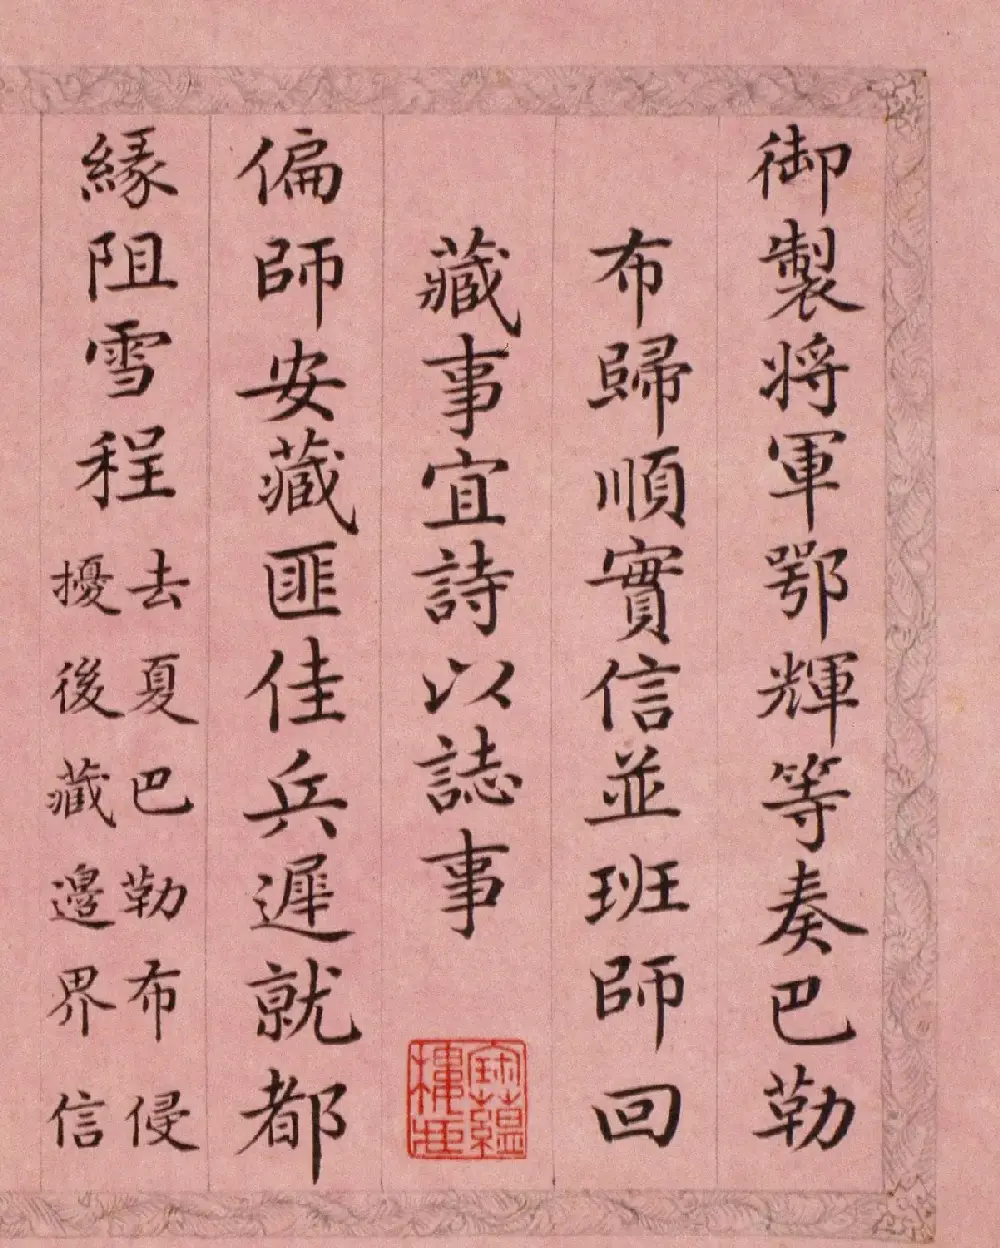 御製將軍鄂輝等奏巴勒
布歸順實信並班師回
藏事宜詩以誌事
寶蘊樓
偏師安藏匪佳兵遲就都
緣阻雪程
去夏巴勒布侵
擾後藏邊界信